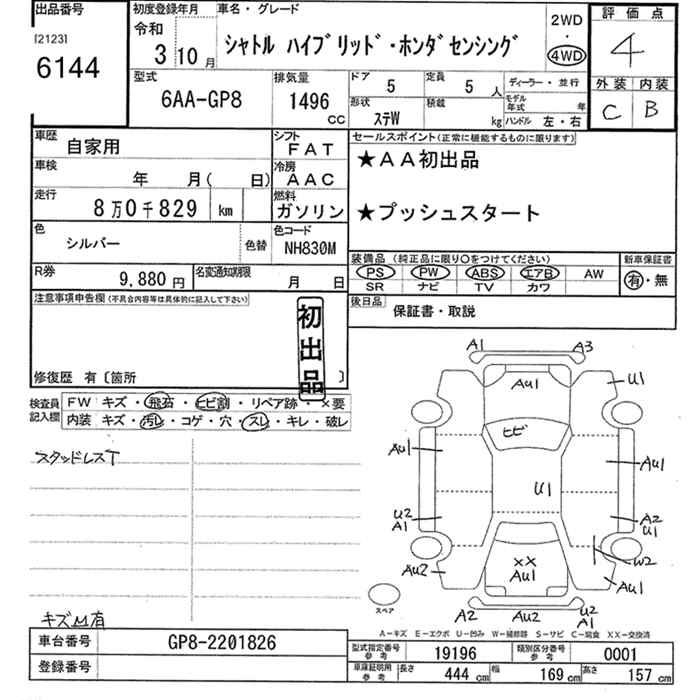 出品番号
[2123]
6144
初度登録年月
令和
3 10月
車名・グレード
シャトル ハイブリッド・ホンダセンシング
2WD
・
4WD
評価点
4
外装 内装
C B
型式
6AA-GP8
排気量
1496
cc
ドア 5
定員 5 人
形状 ステW
積載 kg
ディーラー・並行
モデル年式 年
ハンドル 左・右
車歴 自家用
シフト FAT
車検 年 月( 日)
冷房 AAC
走行 8万0千829 km
燃料 ガソリン
色 シルバー
色替
色コード NH830M
R券 9,880円
名変通知期限 月 日
セールスポイント(正常に機能するものに限ります)
★AA初出品
★プッシュスタート
装備品(純正品に限り○をつけてください)
新車保証書
PS PW ABS エアB AW
SR ナビ TV カワ
有・無
後日品
保証書・取説
注意事項申告欄(不具合内容等は具体的に記入して下さい)
初出品
修復歴 有〔箇所 〕
検査員記入欄
FW キズ・飛石・ヒビ割・リペア跡・×要
内装 キズ・汚レ・コゲ・穴・スレ・キレ・破レ
スタッドレスT
キズM有
A1 A3
AU1 U1
ヒビ
AU1 AU1
U1
U2 A1
A2 U1
W2
AU2
XX
AU1
AU1
スペア
A2 AU2 U2 A1
A-キズ E-エクボ U-凹み W-補修跡 S-サビ C-腐食 XX-交換済
車台番号 GP8-2201826
登録番号
型式指定番号 参考 19196
類別区分番号 参考 0001
車庫証明用 参考 長さ 444 cm 幅 169 cm 高さ 157 cm